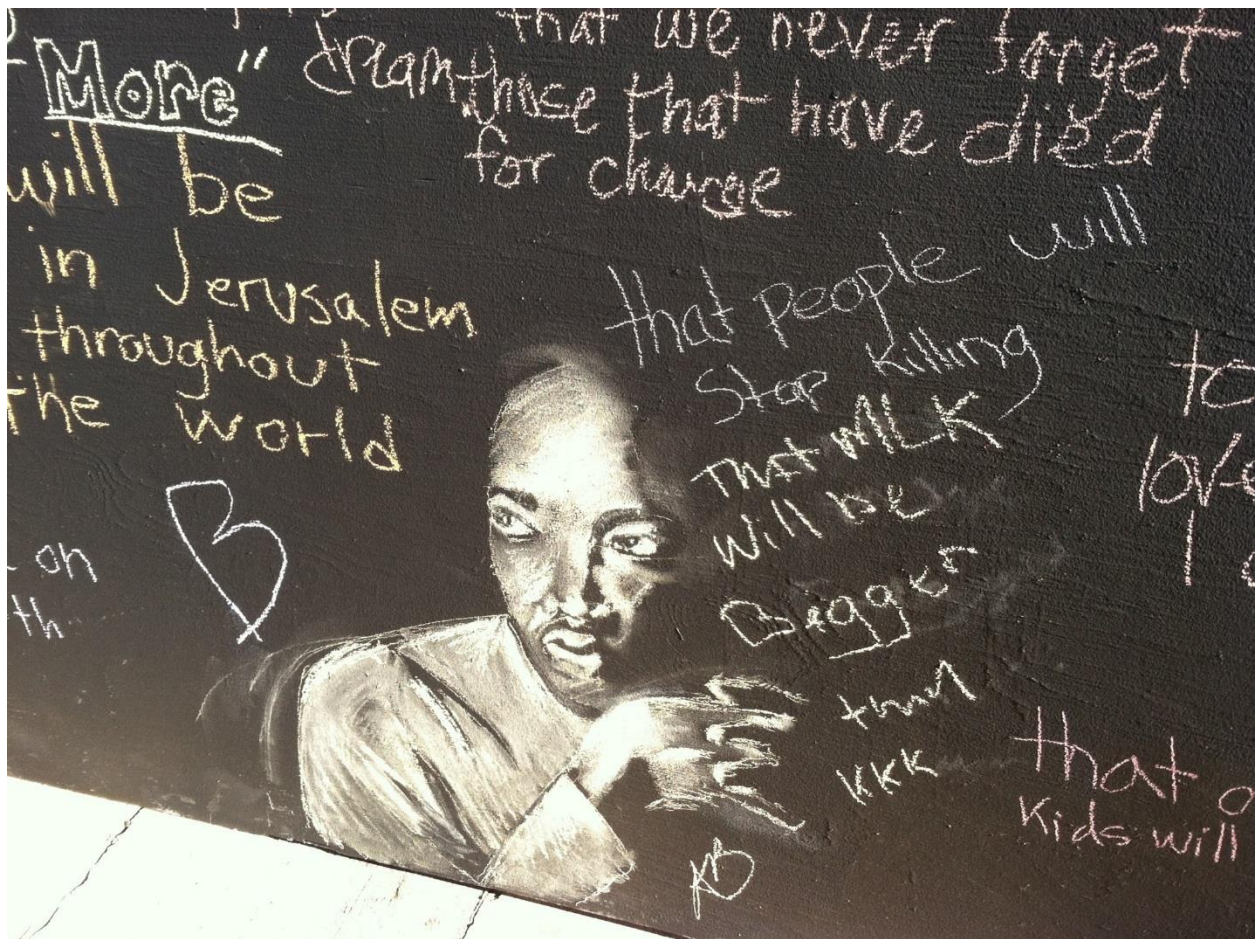 More"
will be
in Jerusalem
throughout
the world
on
th
B
dream
that we never forget
those that have died
for change
that people will
Stop Killing
That MLK
will be
Begger
than
KKK
to
love
that a
Kids will
KB